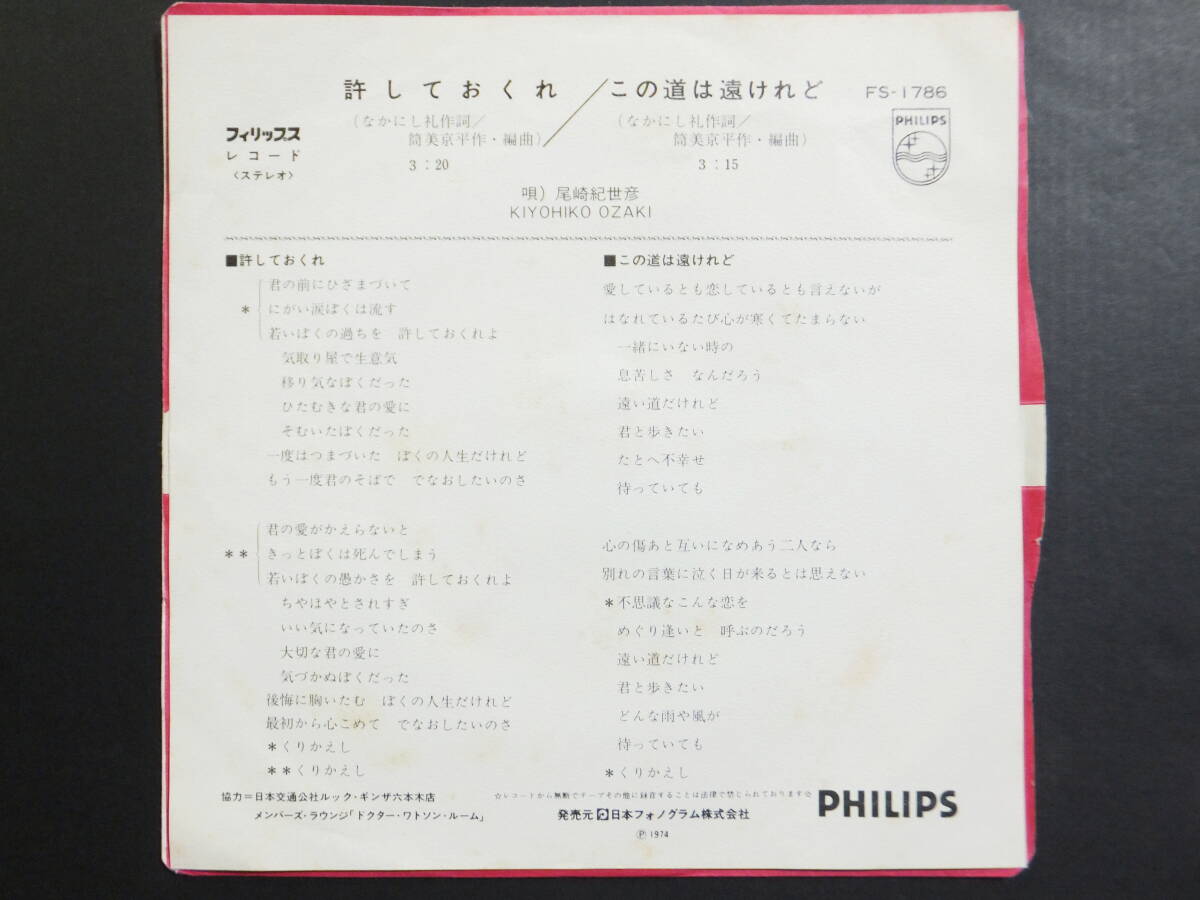 許しておくれ／この道は遠けれど FS-1786
(なかにし礼作詞／
筒美京平作・編曲)
3：20
(なかにし礼作詞／
筒美京平作・編曲)
3：15
フィリップス
レコード
〈ステレオ〉
PHILIPS
唄）尾崎紀世彦
KIYOHIKO OZAKI
■許しておくれ
君の前にひざまづいて
＊にがい涙ぼくは流す
若いぼくの過ちを 許しておくれよ
気取り屋で生意気
移り気なぼくだった
ひたむきな君の愛に
そむいたぼくだった
一度はつまづいた ぼくの人生だけれど
もう一度君のそばで でなおしたいのさ
君の愛がかえらないと
＊＊きっとぼくは死んでしまう
若いぼくの愚かさを 許しておくれよ
ちやほやとされすぎ
いい気になっていたのさ
大切な君の愛に
気づかぬぼくだった
後悔に胸いたむ ぼくの人生だけれど
最初から心こめて でなおしたいのさ
＊くりかえし
＊＊くりかえし
■この道は遠けれど
愛しているとも恋しているとも言えないが
はなれているたび心が寒くてたまらない
一緒にいない時の
息苦しさ なんだろう
遠い道だけれど
君と歩きたい
たとへ不幸せ
待っていても
心の傷あと互いになめあう二人なら
別れの言葉に泣く日が来るとは思えない
＊不思議なこんな恋を
めぐり逢いと 呼ぶのだろう
遠い道だけれど
君と歩きたい
どんな雨や風が
待っていても
＊くりかえし
協力＝日本交通公社ルック・ギンザ六本木店
メンバーズ・ラウンジ「ドクター・ワトソン・ルーム」
☆レコードから無断でテープその他に録音することは法律で禁じられております☆
発売元 日本フォノグラム株式会社
Ⓟ 1974
PHILIPS